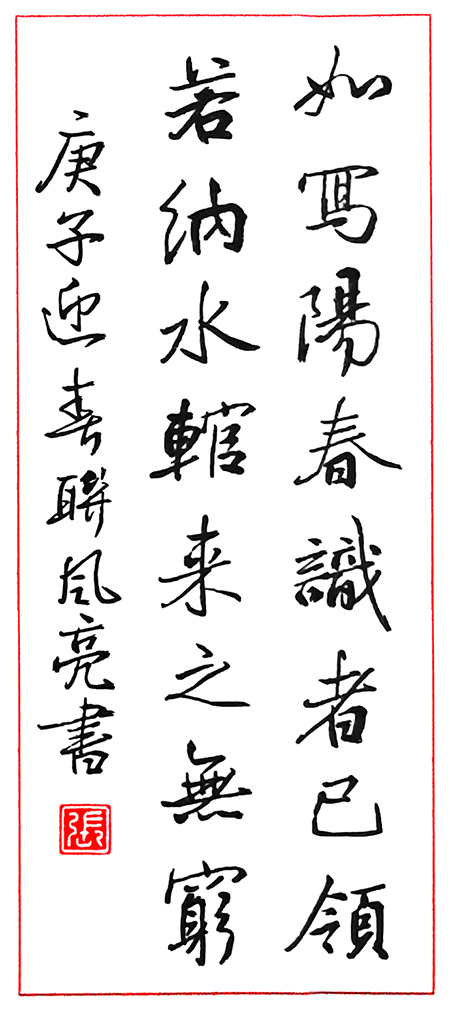 如寫陽春識者已領
若納水輨来之無窮
庚子迎春聯风亮書
張